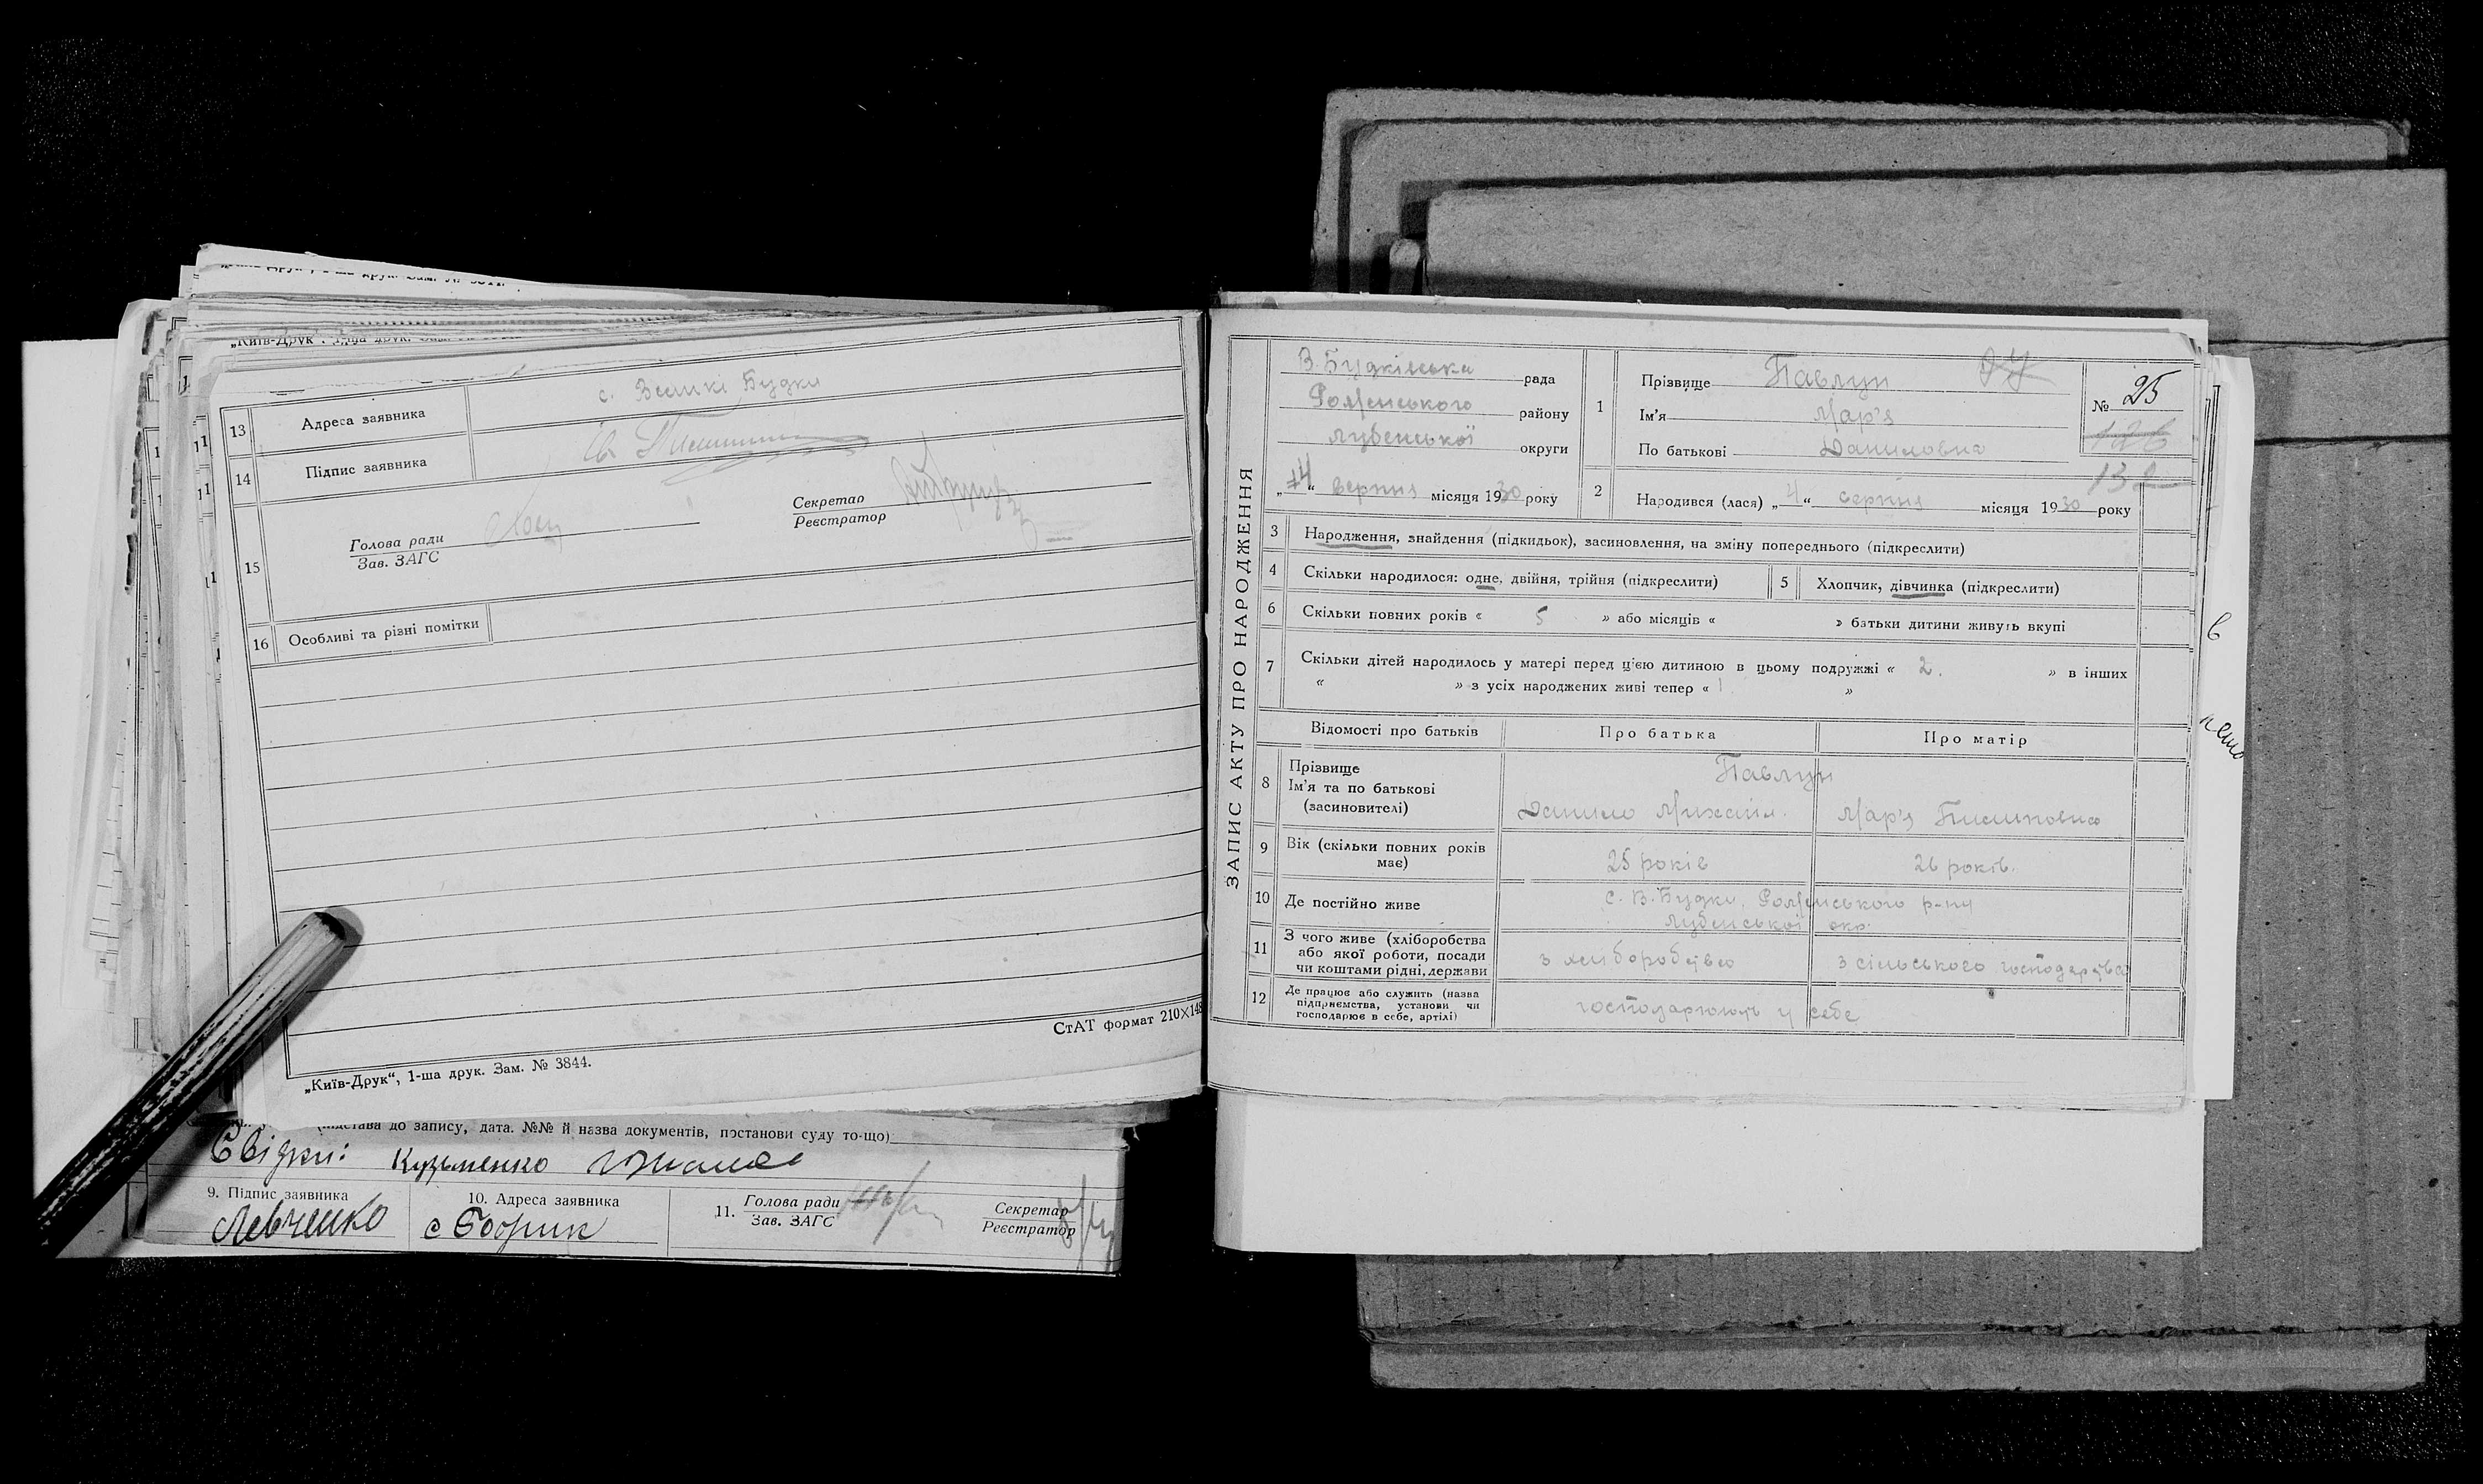 „Київ-Друк“, 1-ша друк.
13 Адреса заявника с. Великі Будки
14 Підпис заявника
15 Голова ради
Зав. ЗАГС
Секретар
Реєстратор
16 Особливі та різні помітки
СтАТ формат 210×148
„Київ-Друк“, 1-ша друк. Зам. № 3844.
до запису, дата. №№ й назва документів, постанови суду то-що)
Свідки: Кузьменко
9. Підпис заявника
Левченко
10. Адреса заявника
с Бобрик
11. Голова ради
Зав. ЗАГС
Секретар
Реєстратор
ЗАПИС АКТУ ПРО НАРОДЖЕННЯ
В. Будківська рада
Роменського району
Лубенської округи
„14“ серпня місяця 1930 року
1 Прізвище Павлун
Ім'я Мар'я
По батькові Даниловна
№ 25
132
2 Народився (лася) „4“ серпня місяця 1930 року
3 Народження, знайдення (підкидьок), засиновлення, на зміну попереднього (підкреслити)
4 Скільки народилося: одне, двійня, трійня (підкреслити) 5 Хлопчик, дівчинка (підкреслити)
6 Скільки повних років « 5 » або місяців « » батьки дитини живуть вкупі
7 Скільки дітей народилось у матері перед цією дитиною в цьому подружжі « 2. » в інших
« » з усіх народжених живі тепер « 1 »
Відомості про батьків Про батька Про матір
8 Прізвище
Ім'я та по батькові
(засиновителі)
Павлун
Данило Михайл. Мар'я Пилиповна
9 Вік (скільки повних років має) 25 років 26 років.
10 Де постійно живе с. В. Будки, Роменського р-ну
Лубенської окр.
11 З чого живе (хліборобства
або якої роботи, посади
чи коштами рідні, держави
з хліборобства з сільського господарства
12 Де працює або служить (назва
підприємства, установи чи
господарює в себе, артілі)
господарюють у себе